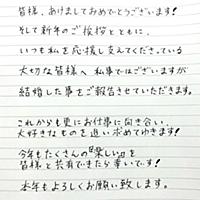 皆様、あけましておめでとうございます!
そして新年のご挨拶とともに、
いつも私を応援し支えてくださっている
大切な皆様へ 私事ではございますが
結婚した事をご報告させていただきます。
これからも更にお仕事に向き合い、
大好きなものを追い求めてゆきます!
今年もたくさんの『楽しい』を
皆様と共有できたら幸いです!
本年もよろしくお願い致します。